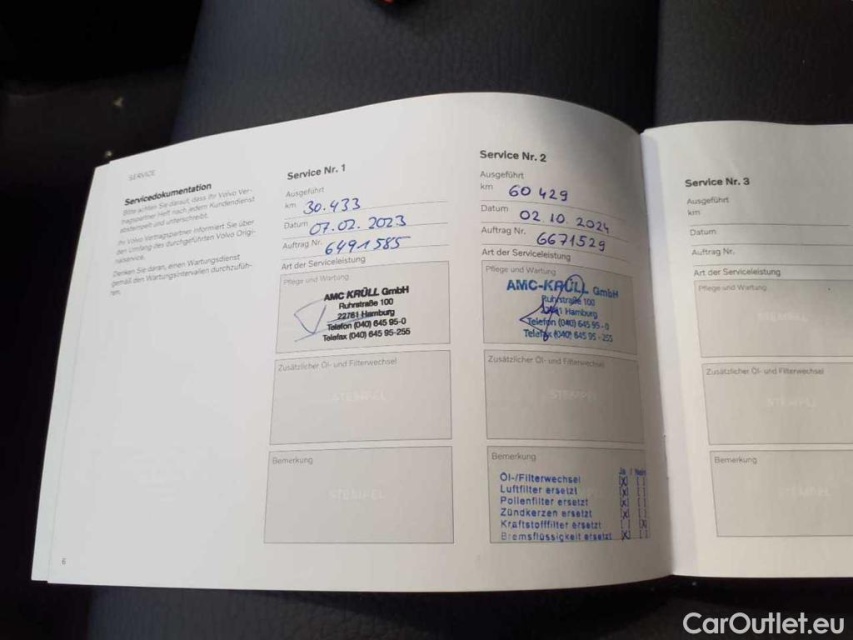 SERVICE
Servicedokumentation
Bitte achten Sie darauf, dass Ihr Volvo Ver-
tragspartner Heft nach jedem Kundendienst
abstempelt und unterschreibt.
Ihr Volvo Vertragspartner informiert Sie über
den Umfang des durchgeführten Volvo Origi-
nalservice.
Denken Sie daran, einen Wartungsdienst
gemäß den Wartungsintervallen durchzufüh-
ren.
6
Service Nr. 1
Ausgeführt
km 30.433
Datum 07.02.2023
Auftrag Nr. 6491585
Art der Serviceleistung
Pflege und Wartung
AMC KRÜLL GmbH
Ruhrstraße 100
22761 Hamburg
Telefon (040) 645 95-0
Telefax (040) 645 95-255
Zusätzlicher Öl- und Filterwechsel
STEMPEL
Bemerkung
STEMPEL
Service Nr. 2
Ausgeführt
km 60 429
Datum 02 10 2024
Auftrag Nr. 6671529
Art der Serviceleistung
Pflege und Wartung
AMC-KRÜLL GmbH
Ruhrstraße 100
Hamburg
Telefon (040) 645 95 - 0
Telefax (040) 645 95 - 255
Zusätzlicher Öl- und Filterwechsel
STEMPEL
Bemerkung
Ja / Nein
Öl-/Filterwechsel
Luftfilter ersetzt
Pollenfilter ersetzt
Zündkerzen ersetzt
Kraftstofffilter ersetzt
Bremsflüssigkeit ersetzt
Service Nr. 3
Ausgeführt
km
Datum
Auftrag Nr.
Art der Serviceleistung
Pflege und Wartung
STEMPEL
Zusätzlicher Öl- und Filterwechsel
STEMPEL
Bemerkung
STEMPEL
CarOutlet.eu